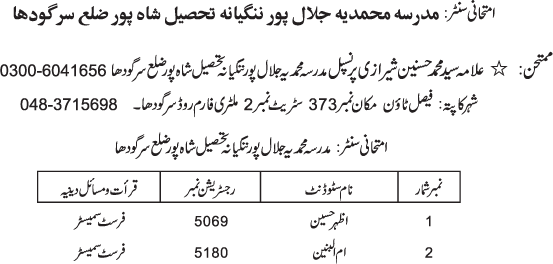 امتحانی سنٹر: مدرسہ محمدیہ جلال پور ننگیانہ تحصیل شاہ پور ضلع سرگودھا
ممتحن: ☆ علامہ سید محمد حسنین شیرازی پرنسپل مدرسہ محمدیہ جلال پور ننگیانہ تحصیل شاہ پور ضلع سرگودھا 0300-6041656
شہر کا پتہ: فیصل ٹاؤن مکان نمبر 373 سٹریٹ نمبر 2 ملٹری فارم روڈ سرگودھا۔ 048-3715698
امتحانی سنٹر: مدرسہ محمدیہ جلال پور ننگیانہ تحصیل شاہ پور ضلع سرگودھا
نمبر شمار نام سٹوڈنٹ رجسٹریشن نمبر قرأت و مسائل دینیہ
1 اظہر حسین 5069 فرسٹ سمیسٹر
2 ام البنین 5180 فرسٹ سمیسٹر